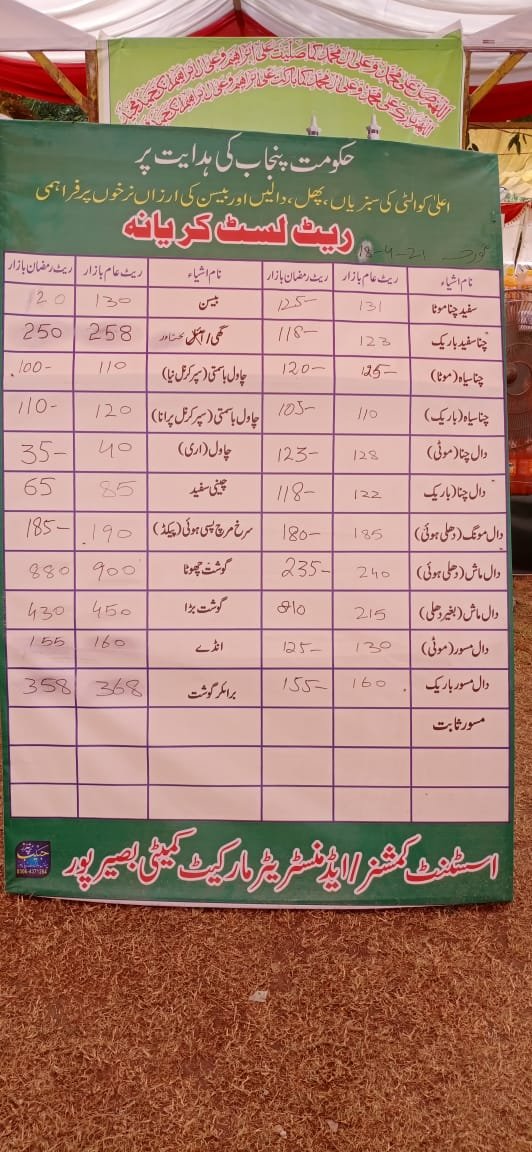 اللهم صل علی محمد وعلی ال محمد کما صلیت علی ابراهیم وعلی ال ابراهیم انک حمید مجید
اللهم بارک علی محمد وعلی ال محمد کما بارکت علی ابراهیم وعلی ال ابراهیم انک حمید مجید
حکومت پنجاب کی ہدایت پر
اعلیٰ کوالٹی کی سبزیاں، پھل، دالیں اور بیسن کی ارزاں نرخوں پر فراہمی
ریٹ لسٹ کریانہ
18-4-21
نام اشیاء ریٹ عام بازار ریٹ رمضان بازار نام اشیاء ریٹ عام بازار ریٹ رمضان بازار
سفید چنا موٹا 131 125- بیسن 130 120
چنا سفید باریک 123 118- گھی / آئل 258 250
چنا سیاہ (موٹا) 125- 120- چاول باسمتی (سپر کرنل نیا) 110 100-
چنا سیاہ (باریک) 110 105- چاول باسمتی (سپر کرنل پرانا) 120 110-
دال چنا (موٹی) 128 123- چاول (اری) 40 35-
دال چنا (باریک) 122 118- چینی سفید 85 65
دال مونگ (دھلی ہوئی) 185 180- سرخ مرچ پسی ہوئی (پیکڈ) 190 185-
دال ماش (دھلی ہوئی) 240 235- گوشت چھوٹا 900 880
دال ماش (بغیر دھلی) 215 گوشت بڑا 450 430
دال مسور (موٹی) 130 125- انڈے 160 155
دال مسور باریک 160 155- برائلر گوشت 368 358
مسور ثابت
اسسٹنٹ کمشنر / ایڈمنسٹریٹر مارکیٹ کمیٹی بصیر پور